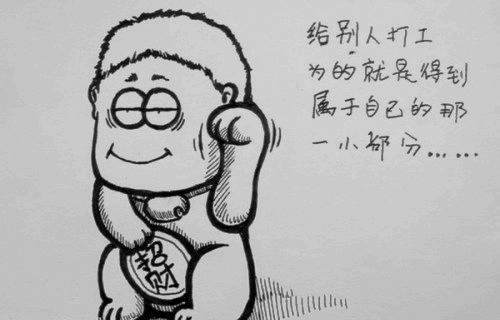 给别人打工
为的就是得到
属于自己的那
一小部分……
招财